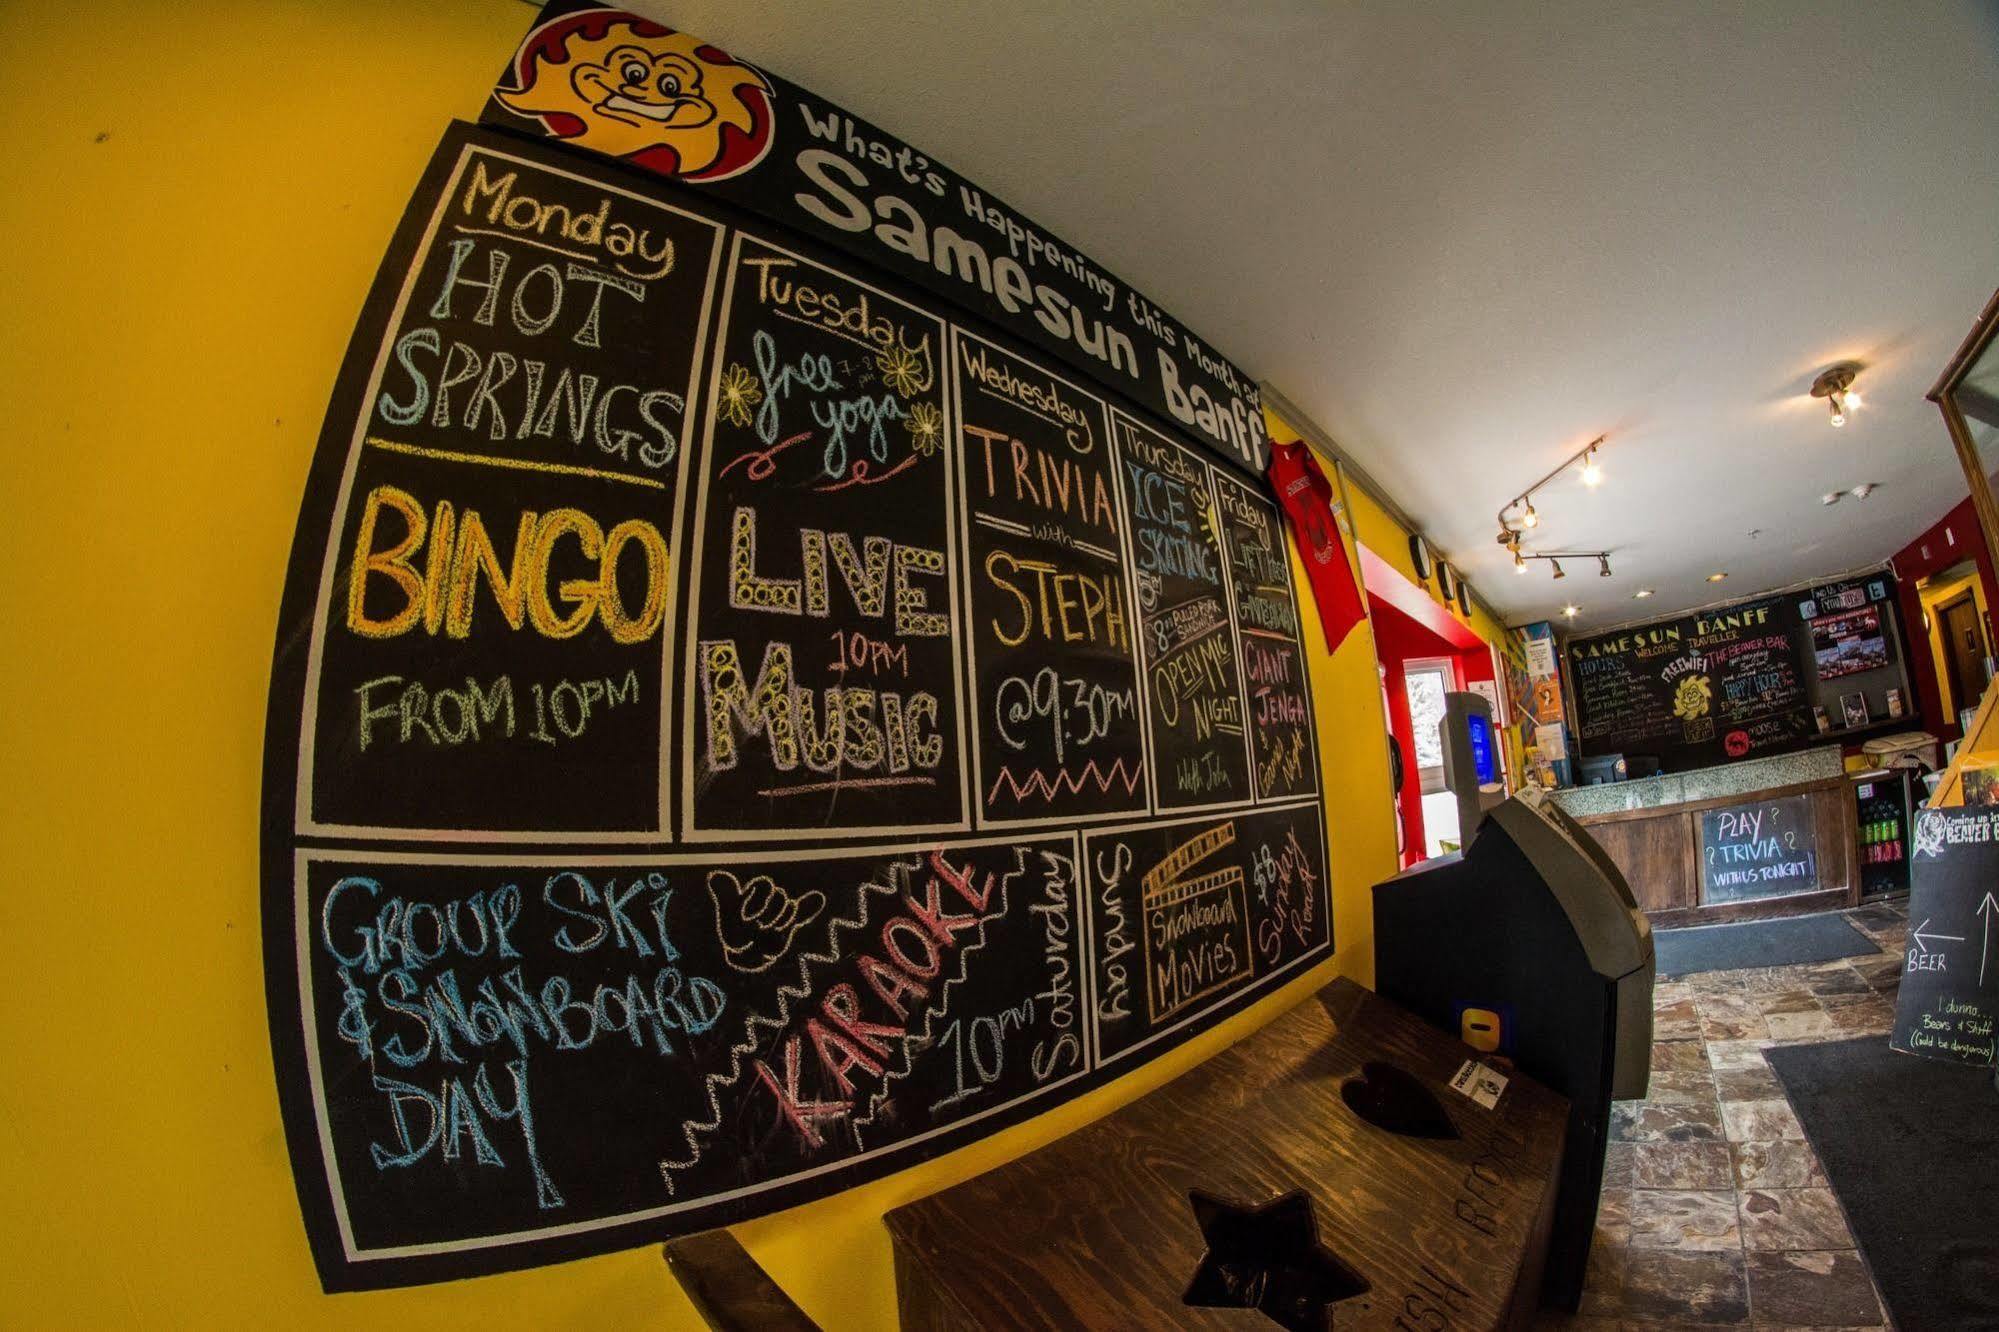 What's Happening this Month at
Samesun Banff
Monday
HOT
SPRINGS
BINGO
FROM 10PM
Tuesday
free 7-8
pm
yoga
LIVE
10PM
MUSIC
Wednesday
TRIVIA
with
STEPH
@9:30PM
Thursday
ICE
SKATING
$8 PULLED PORK
SANDWICH
OPEN MIC
NIGHT
With John
Friday
LIFT PASS
GIVEAWAY
GIANT
JENGA
&
Game
Night
GROUP SKi
& SNOWBOARD
DAY
KARAOKE
10PM
Saturday
Sunday
Snowboard
MOVIES
$8
Sunday
Roast
SAMESUN BANFF
WELCOME TRAVELLER
HOURS
FREE WIFI
THE BEAVER BAR
HAPPY HOURS
MOOSE
PLAY
? TRIVIA ?
WITH US TONIGHT!!
?
Coming up in
BEAVER
BEER
I dunno...
Bears & Stuff
(Could be dangerous)